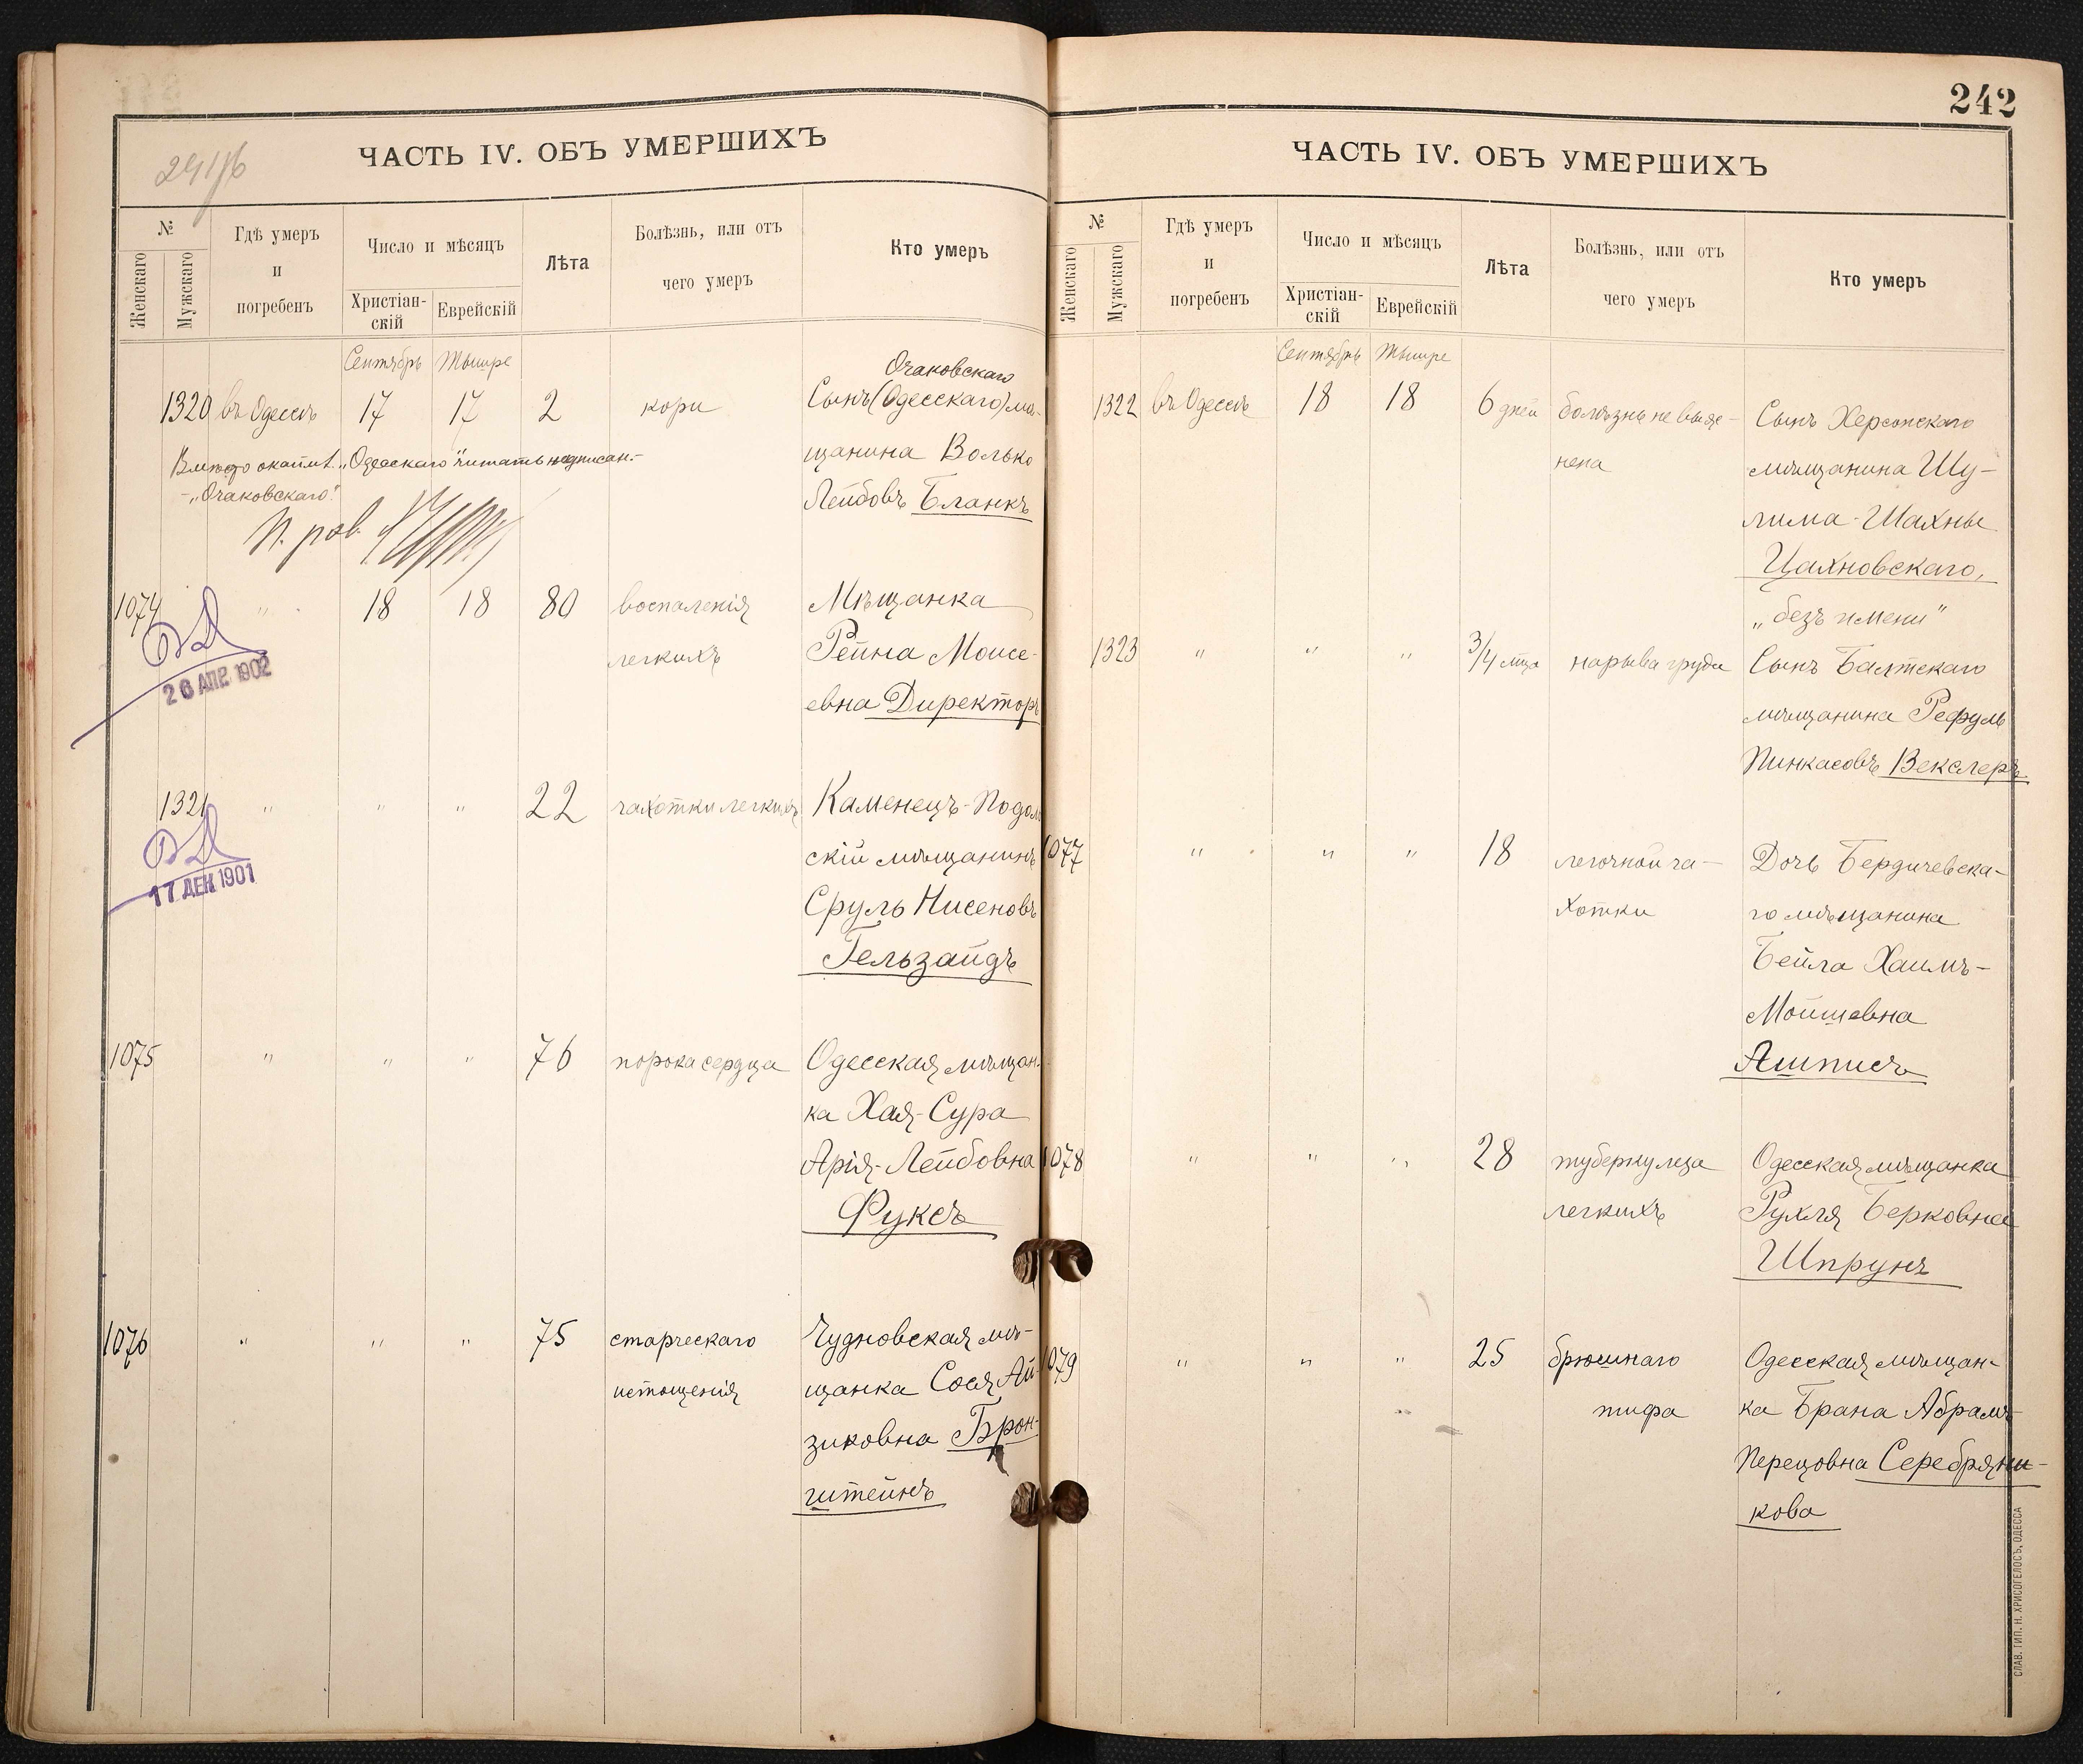 241/б
ЧАСТЬ IV. ОБЪ УМЕРШИХЪ
№
Женскаго
Мужскаго
Гдѣ умеръ
и
погребенъ
Число и мѣсяцъ
Христіан-
скій
Еврейскій
Лѣта
Болѣзнь, или отъ
чего умеръ
Кто умеръ
Сентябрь Тышре
1320 въ Одессѣ 17 17 2 кори
Очаковскаго
Сынъ (Одесскаго) мѣ-
щанина Волько
Лейбовъ Бланкъ
Вмѣсто окаймл. „Одесскаго" читать надписан.-
-„Очаковскаго".
1074 " 18 18 80 воспаленія Мѣщанка
легкихъ Рейна Моисе-
евна Директоръ
26 АПР. 1902
1321 " " " 22 чахотки легкихъ Каменецъ-Подоль
скій мѣщанинъ
Сруль Нисеновъ
Гельзайдъ
17 ДЕК 1901
1075 " " " 76 порока сердца Одесская мѣщан-
ка Хая-Сура
Арія-Лейбовна
Фуксъ
1076 " " " 75 старческаго Чудновская мѣ-
истощенія щанка Сося Ай-
зиковна Брон-
штейнъ
242
ЧАСТЬ IV. ОБЪ УМЕРШИХЪ
№
Женскаго
Мужскаго
Гдѣ умеръ
и
погребенъ
Число и мѣсяцъ
Христіан-
скій
Еврейскій
Лѣта
Болѣзнь, или отъ
чего умеръ
Кто умеръ
Сентябрь Тышре
1322 въ Одессѣ 18 18 6 дней болѣзнь не выяс- Сынъ Херсонскаго
нена мѣщанина Шу-
лима-Шахны
Цахновскаго,
„безъ имени"
1323 " " " 3/4 мца нарыва груди Сынъ Балтскаго
мѣщанина Рефуль
Пинкасовъ Векслеръ
1077 " " " 18 легочной ча- Дочь Бердичевска-
хотки го мѣщанина
Бейла Хаимъ-
Мойшевна
Ашписъ
1078 " " " 28 туберкулеза Одесская мѣщанка
легкихъ Рухля Берковна
Шпрунъ
1079 " " " 25 брюшнаго Одесская мѣщан-
тифа ка Брана Абрамъ-
Перецовна Серебряни-
кова
СЛАВ. ТИП. Н. ХРИСОГЕЛОСЪ, ОДЕССА